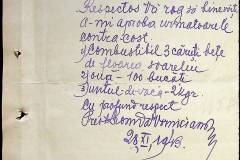 Respectos Vă rog să binevoiți
a-mi aproba următoarele
contra cost
1) Combustibil 3 căruțe bețe
de floarea soarelui
2) ouă - 100 bucăți
3) untul de vacă - 2 kgr.
Cu profund respect
28 XI 1943